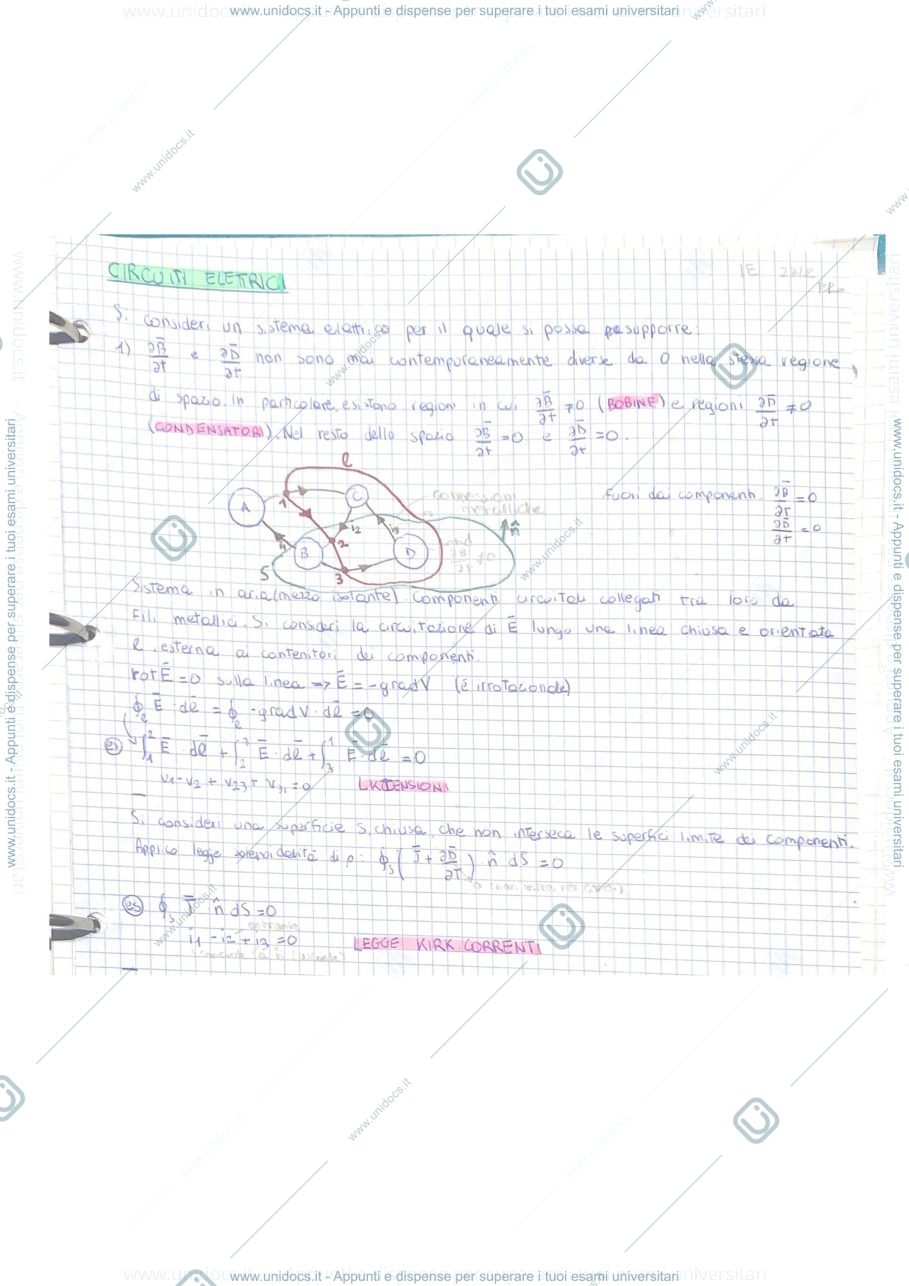 www.unidocs.it - Appunti e dispense per superare i tuoi esami universitari
CIRCUITI ELETTRICI
IE
Si consideri un sistema elettrico per il quale si possa presupporre:
1) ∂B̄/∂t e ∂D̄/∂t non sono mai contemporaneamente diverse da 0 nella stessa regione,
di spazio. In particolare, esistono regioni in cui ∂B̄/∂t ≠0 (BOBINE) e regioni ∂D̄/∂t ≠0
(CONDENSATORI). Nel resto dello spazio ∂B̄/∂t =0 e ∂D̄/∂t =0.
l
A 1 C
connessioni
metalliche
Fuori dai componenti ∂B̄/∂t =0
∂D̄/∂t =0
n̂
i1 i2 i3
B 2 D
S 3
Sistema in aria (mezzo isolante). Componenti circuitali collegati tra loro da
Fili metallici. Si consideri la circuitazione di Ē lungo una linea chiusa e orientata
l, esterna ai contenitori dei componenti.
rot Ē =0 sulla linea => Ē = -grad V (è irrotazionale)
∮l Ē · dl̄ = ∮l -grad V · dl̄ =0
es ∫₁² Ē · dl̄ + ∫₂³ Ē · dl̄ + ∫₃¹ Ē · dl̄ =0
V1-V2 + V23 + V31 =0 LKTENSIONI
Si consideri una superficie S, chiusa, che non interseca le superfici limite dei componenti.
Applico legge solenoidalità di ρ: ∮s ( J̄ + ∂D̄/∂t ) n̂ dS =0
es ∮s J̄ n̂ dS =0
i1 - i2 + i3 =0 LEGGE KIRK CORRENTI
www.unidocs.it - Appunti e dispense per superare i tuoi esami universitari